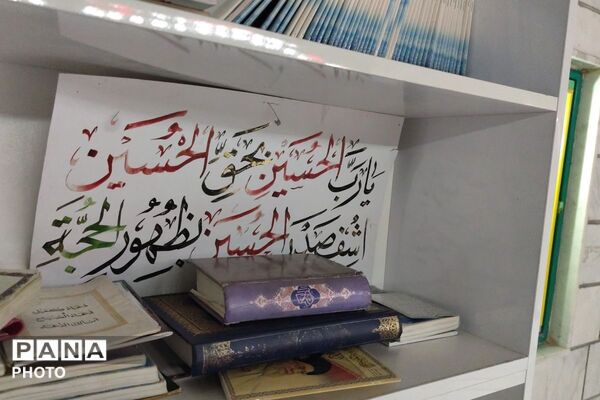 يَا رَبَّ الحُسَيْن بِحَقِّ الحُسَيْن
اشْفِ صَدْرَ الحُسَيْن بِظُهُورِ الحُجَّةِ
PANA
PHOTO